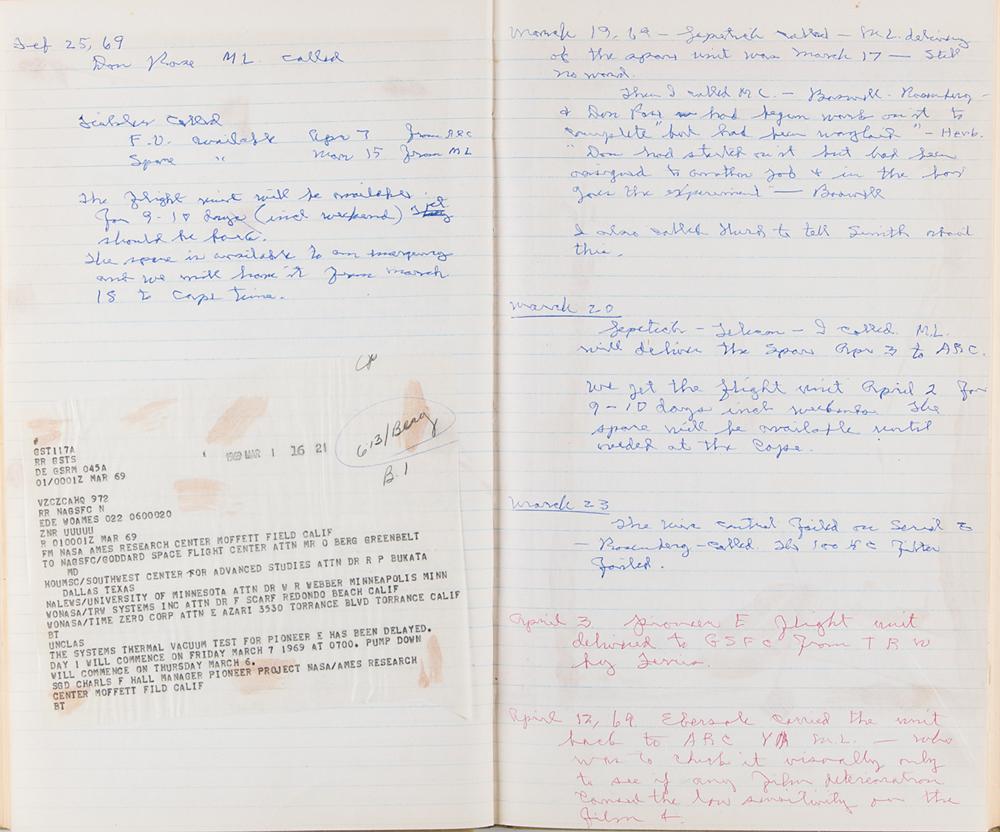 Feb 25, 69
Don Rose ML called
called
F.U. available Apr 7 from ARC
Spare " Mar 15 from ML
The flight unit will be available
for 9-10 days (incl weekend)
should be back.
The spare is available to an emergency
and we will have it from March
18 to Cape time.
6-13/Berg
B.1
1969 MAR 1 16 21
GST117A
RR GSTS
DE GSRM 045A
01/0001Z MAR 69
VZCZCAHQ 972
RR NAGSFC N
EDE WOAMES 022 0600020
ZNR UUUUU
R 010001Z MAR 69
FM NASA AMES RESEARCH CENTER MOFFETT FIELD CALIF
TO NAGSFC/GODDARD SPACE FLIGHT CENTER ATTN MR O BERG GREENBELT
MD
HOUMSC/SOUTHWEST CENTER FOR ADVANCED STUDIES ATTN DR R P BUKATA
DALLAS TEXAS
NALEWS/UNIVERSITY OF MINNESOTA ATTN DR W R WEBBER MINNEAPOLIS MINN
WONASA/TRW SYSTEMS INC ATTN DR F SCARF REDONDO BEACH CALIF
WONASA/TIME ZERO CORP ATTN E AZARI 3530 TORRANCE BLVD TORRANCE CALIF
BT
UNCLAS
THE SYSTEMS THERMAL VACUUM TEST FOR PIONEER E HAS BEEN DELAYED.
DAY 1 WILL COMMENCE ON FRIDAY MARCH 7 1969 AT 0700. PUMP DOWN
WILL COMMENCE ON THURSDAY MARCH 6.
SGD CHARLS F HALL MANAGER PIONEER PROJECT NASA/AMES RESEARCH
CENTER MOFFETT FILD CALIF
BT
March 19, 69 - Lepetich called - M.L. delivery
of the spare unit was March 17 - Still
no word.
Then I called M.L. - Boswell - Rosenberg -
& Don Rose had begun work on it to
complete" but had been waylaid" - Herb.
"Don had started on it but had been
assigned to another job & in the
goes the experiment - Boswell
I also called to tell Smith about
this.
March 20
Lepetich - Telecon - I called. M.L.
will deliver the spare Apr 3 to ARC.
We get the flight unit April 2 for
9-10 days incl weekends. The
spare will be available until
needed at the Cape.
March 23
The control failed on Serial
- Rosenberg - called. The filter
failed.
April 3 Pioneer E flight unit
delivered to GSFC from TRW
by
April 12, 69. Ebersole carried the unit
back to ARC M.L. - who
was to check it visually only
to see if any film deterioration
caused the low sensitivity on the
film